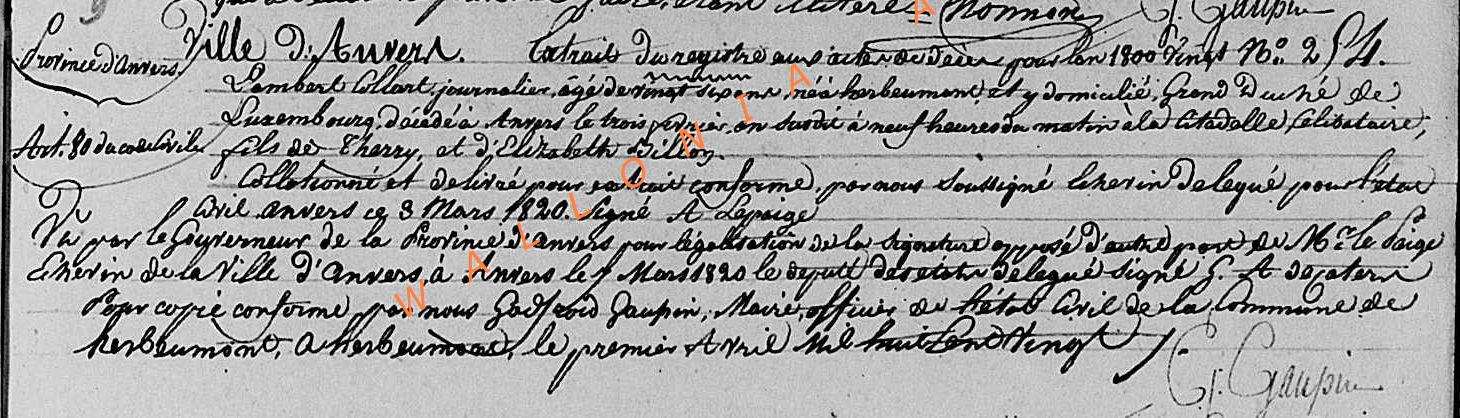 Nonnon G. Gaupin
Province d'Anvers.
Ville d'Anvers. Extrait du registre aux actes de décès pour l'an 1800 Vingt No. 254.
Lambert Collart, journalier, âgé de vingt six ans, né à herbeumont, et y domicilié, Grand Duché de
Luxembourg, décédé à Anvers le trois du susdit à neuf heures du matin à la Citadelle, Celibataire,
Art. 80 du code Civile
fils de Therry, et d'Elizabeth Billoy.
Collationné et delivré pour extrait conforme, par nous Soussigné Echevin delegué pour l'état
Civil anvers ce 3 Mars 1820. Signé A Lepaige
Vu par le Gouverneur de la Province d'anvers pour légalisation de la signature apposé d'autre part de Mr. le Paige
Echevin de la Ville d'Anvers, à Anvers le 7 Mars 1820 le deputé des états delegué Signé G. A
Pour copie conforme par nous Godfroid Gaupin, Maire, officier de l'état Civil de la Commune de
herbeumont, a herbeumont, le premier Avril Mil huit Cent Vingt
G. Gaupin
WALLONIA